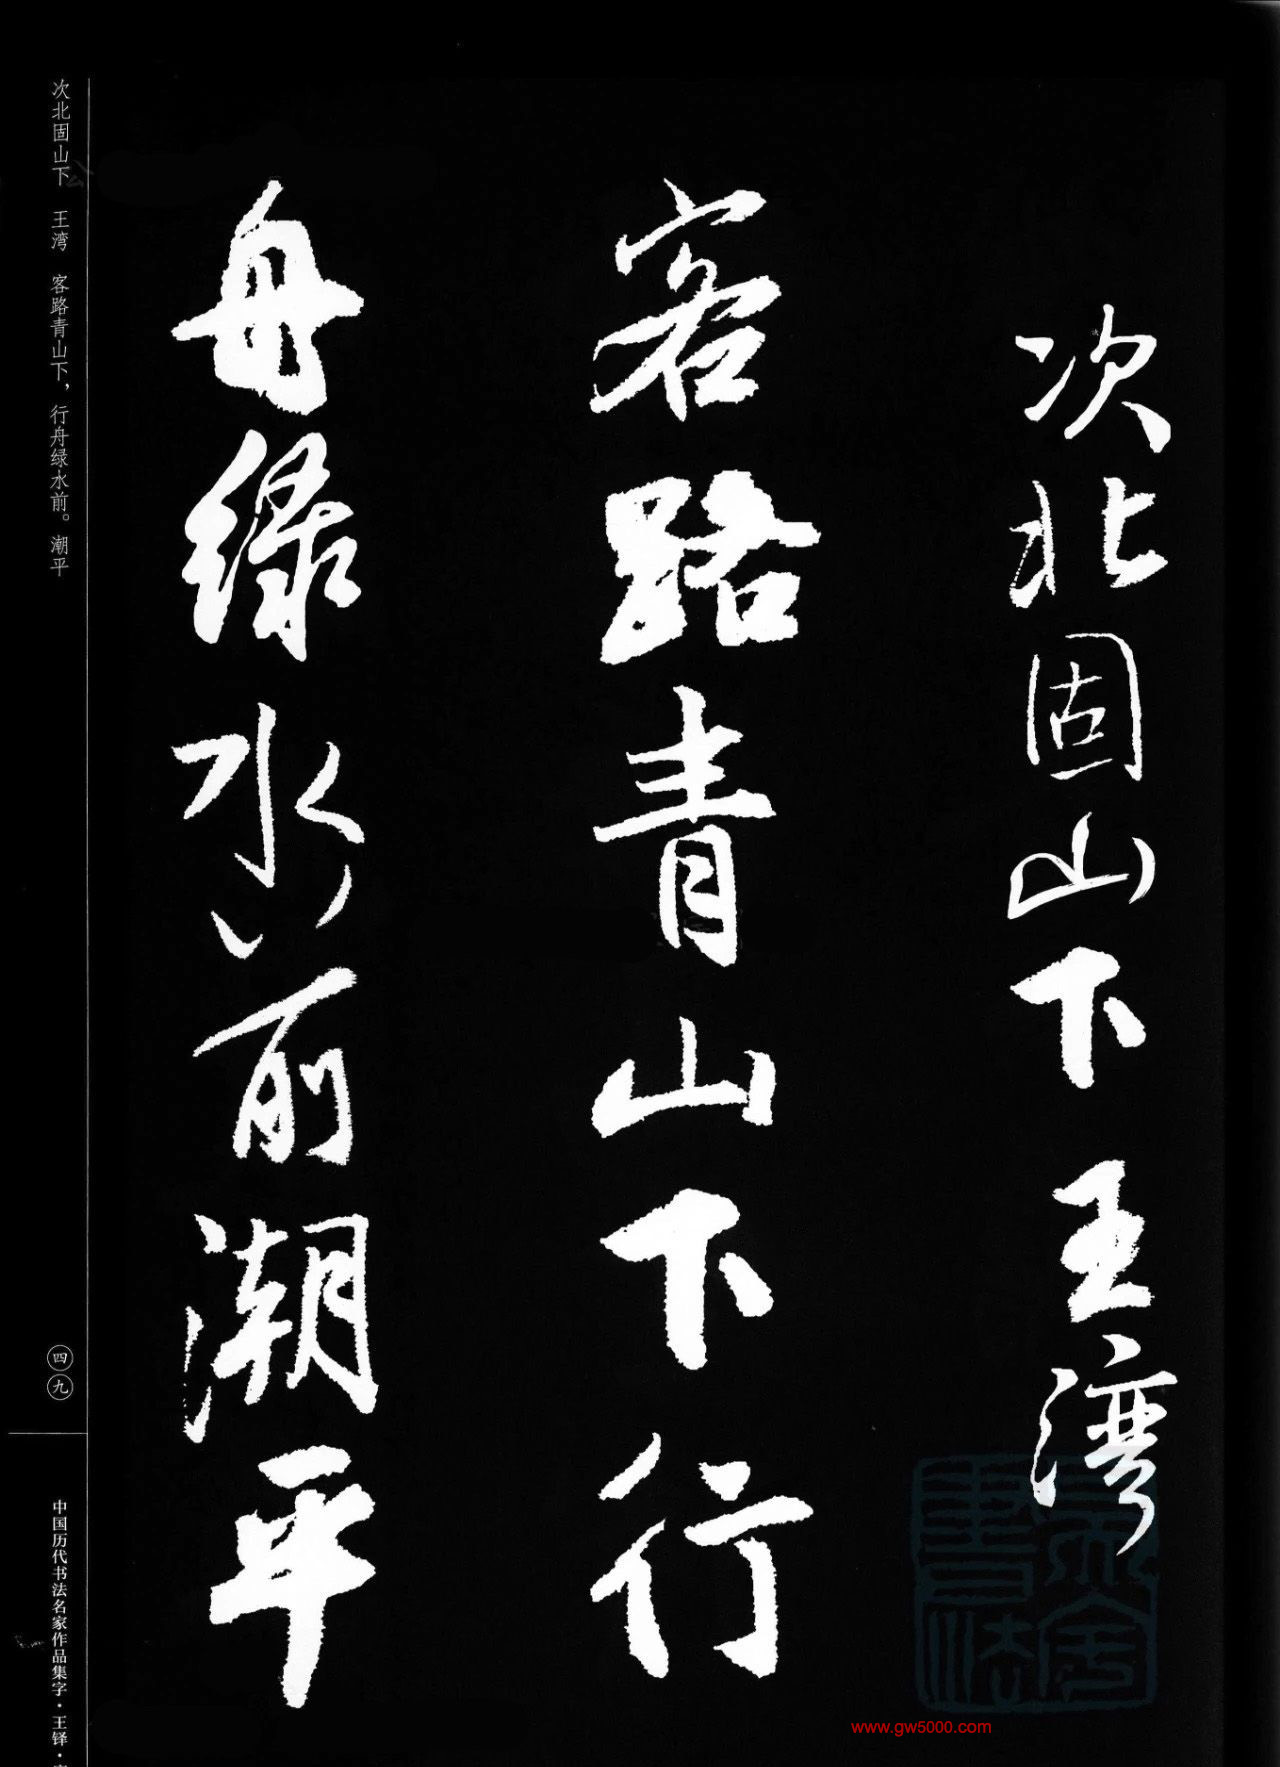 次北固山下王湾
客路青山下行
舟绿水前潮平
次北固山下 王湾 客路青山下，行舟绿水前。潮平
四九
中国历代书法名家作品集字·王铎·
www.gw5000.com